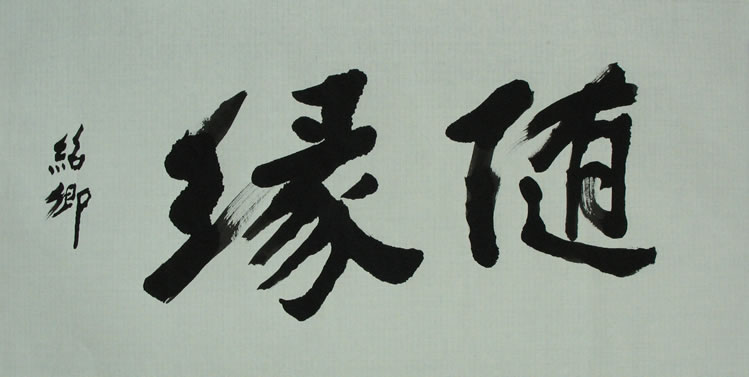 随缘
紹卿